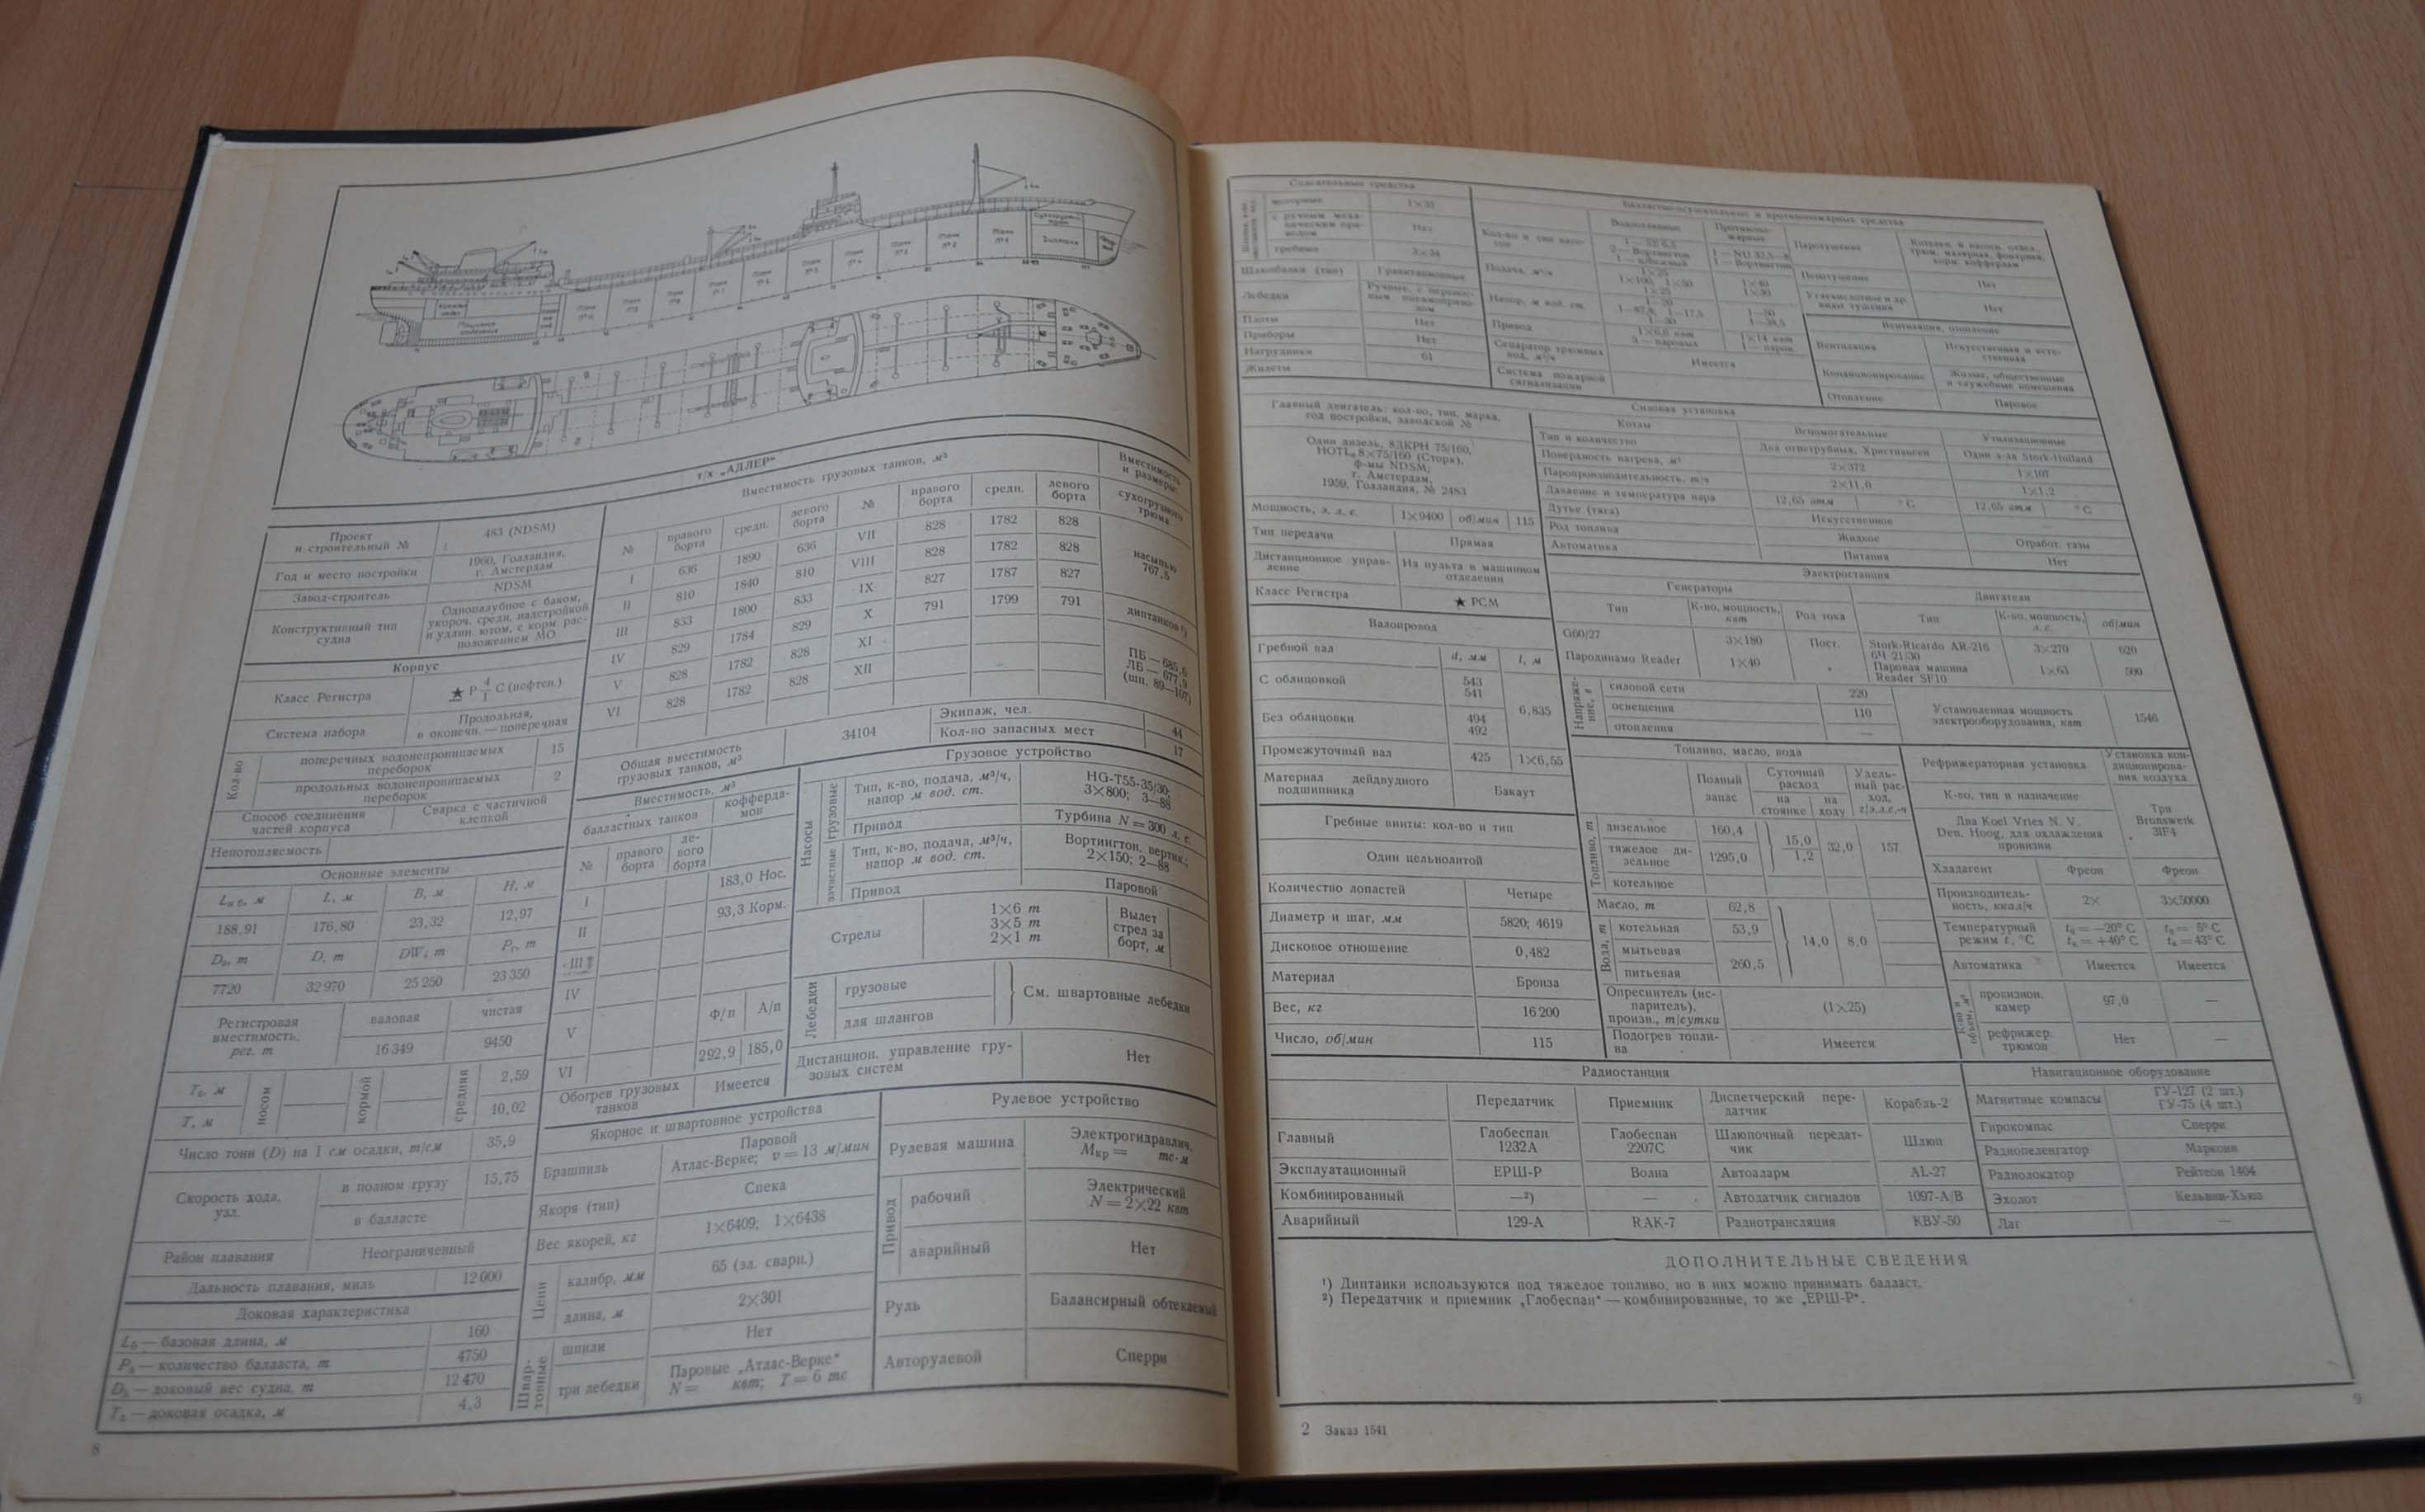 т/х „АДЛЕР"
Проект и строительный № 483 (NDSM)
Год и место постройки 1960, Голландия, г. Амстердам
Завод-строитель NDSM
Конструктивный тип судна Однопалубное с баком, укороч. средн. надстройкой и удлин. ютом, с корм. расположением МО
Корпус
Класс Регистра ★ Р 4/1 С (нефтен.)
Система набора Продольная, в оконечн. — поперечная
Кол-во
поперечных водонепроницаемых переборок 15
продольных водонепроницаемых переборок 2
Способ соединения частей корпуса Сварка с частичной клепкой
Непотопляемость
Основные элементы
L, м B, м H, м
188,91 176,80 23,32 12,97
D, т DW, т
7720 32 970 25 250 23 350
Регистровая вместимость, рег. т валовая чистая
16 349 9450
носом кормой средняя
2,59
Т, м 10,02
Число тонн (D) на 1 см осадки, т/см 35,9
Скорость хода, узл. в полном грузу 15,75
в балласте
Район плавания Неограниченный
Дальность плавания, миль 12 000
Доковая характеристика
— базовая длина, м 160
— количество балласта, т 4750
— доковый вес судна, т 12 470
— доковая осадка, м 4,3
Вместимость грузовых танков, м³
№ правого борта средн. левого борта № правого борта средн. левого борта
I 636 1890 636 VII 828 1782 828
II 810 1840 810 VIII 828 1782 828
III 833 1800 833 IX 827 1787 827
IV 829 1784 829 X 791 1799 791
V 828 1782 828 XI
VI 828 1782 828 XII
Вместимость и размеры:
сухогрузного трюма
насыпью 767,5
диптанков ¹)
ПБ — 685,6
ЛБ — 677,9
(шп. 89—107)
Общая вместимость грузовых танков, м³ 34104
Экипаж, чел. 44
Кол-во запасных мест 17
Вместимость, м³
балластных танков коффердамов
№ правого борта левого борта
I 183,0 Нос.
II 93,3 Корм.
III
IV
V Ф/п А/п
VI 292,9 185,0
Обогрев грузовых танков Имеется
Грузовое устройство
Насосы
грузовые
Тип, к-во, подача, м³/ч, напор м вод. ст. HG-T55-35/30; 3×800; 3—88
Привод Турбина N = 300 л. с.
зачистные
Тип, к-во, подача, м³/ч, напор м вод. ст. Вортингтон, вертик.; 2×150; 2—88
Привод Паровой
Стрелы 1×6 т
3×5 т
2×1 т
Вылет стрел за борт, м
Лебедки
грузовые
для шлангов
См. швартовные лебедки
Дистанцион. управление грузовых систем Нет
Якорное и швартовное устройства
Брашпиль Паровой Атлас-Верке; v = 13 м/мин
Якоря (тип) Спека
Вес якорей, кг 1×6409; 1×6438
Цепи
калибр, мм 65 (эл. сварн.)
длина, м 2×301
Швартовные
шпили Нет
три лебедки Паровые „Атлас-Верке" N = квт; T = 6 тс
Рулевое устройство
Рулевая машина Электрогидравлич. Мкр = тс·м
Привод
рабочий Электрический N = 2×22 квт
аварийный Нет
Руль Балансирный обтекаемый
Авторулевой Сперри
8
Спасательные средства
моторные 1×31
с ручным механическим приводом Нет
гребные 3×34
Шлюпбалки (тип) Гравитационные
Лебедки
Плоты Нет
Приборы Нет
Нагрудники 61
Жилеты
Балластно-осушительные и противопожарные средства
Привод
Сепаратор трюмных вод, м³/ч
Имеется
Система пожарной сигнализации
Пенотушение Нет
Нет
Вентиляция, отопление
Вентиляция Искусственная и естественная
Кондиционирование Жилые, общественные и служебные помещения
Отопление Паровое
Силовая установка
Главный двигатель: кол-во, тип, марка, год постройки, заводской №
Один дизель, 8ДКРН 75/160,
HOTL 8×75/160 (Сторк),
ф-мы NDSM,
г. Амстердам,
1959, Голландия, № 2483
Мощность, э. л. с. 1×9400 об/мин 115
Тип передачи Прямая
Дистанционное управление Из пульта в машинном отделении
Класс Регистра ★ РСМ
Котлы Вспомогательные Утилизационные
Тип и количество Два огнетрубных, Христиансен Один з-да Stork-Holland
Поверхность нагрева, м² 2×372 1×107
Паропроизводительность, т/ч 2×11,0 1×1,2
Давление и температура пара 12,65 атм °С 12,65 атм °С
Дутье (тяга) Искусственное —
Род топлива Жидкое Отработ. газы
Автоматика Питания Нет
Валопровод
Гребной вал d, мм l, м
С облицовкой 543 541
Без облицовки 494 492
6,835
Промежуточный вал 425 1×6,55
Материал дейдвудного подшипника Бакаут
Гребные винты: кол-во и тип
Один цельнолитой
Количество лопастей Четыре
Диаметр и шаг, мм 5820; 4619
Дисковое отношение 0,482
Материал Бронза
Вес, кг 16 200
Число, об/мин 115
Электростанция
Генераторы Двигатели
Тип К-во, мощность, квт Род тока Тип К-во, мощность, л. с. об/мин
G60/27 3×180 Пост. Stork-Ricardo AR-216 6Ч 21/30 3×270 620
Пародинамо Reader 1×40 „ Паровая машина Reader SF10 1×63 500
Напряжение, в
силовой сети 220
освещения 110
отопления —
Установленная мощность электрооборудования, квт 1546
Топливо, масло, вода
Полный запас Суточный расход на стоянке на ходу Удельный расход, г/э.л.с.-ч
Топливо, т
дизельное 160,4
тяжелое дизельное 1295,0
котельное
15,0 1,2 32,0 157
Масло, т 62,8
Вода, т
котельная 53,9
мытьевая
питьевая
260,5
14,0 8,0
Опреснитель (испаритель), произв., т/сутки (1×25)
Подогрев топлива Имеется
Рефрижераторная установка Установка кондиционирования воздуха
К-во, тип и назначение
Два Koel Vries N. V. Den. Hoog, для охлаждения провизии Три Bronswerk 3IF4
Хладагент Фреон Фреон
Производительность, ккал/ч 2× 3×50000
Температурный режим t, °С t₀ = —20° С tк = +40° С t₀ = 5° С tк = 43° С
Автоматика Имеется Имеется
К-во и объем, м³
провизион. камер 97,0 —
рефрижер. трюмов Нет —
Радиостанция
Передатчик Приемник Диспетчерский передатчик Корабль-2
Главный Глобеспан 1232А Глобеспан 2207С Шлюпочный передатчик Шлюп
Эксплуатационный ЕРШ-Р Волна Автоаларм AL-27
Комбинированный —²) — Автодатчик сигналов 1097-А/В
Аварийный 129-А RAK-7 Радиотрансляция КВУ-50
Навигационное оборудование
Магнитные компасы ГУ-127 (2 шт.) ГУ-75 (4 шт.)
Гирокомпас Сперри
Радиопеленгатор Маркони
Радиолокатор Рейтеон 1404
Эхолот Кельвин-Хьюз
Лаг —
ДОПОЛНИТЕЛЬНЫЕ СВЕДЕНИЯ
¹) Диптанки используются под тяжелое топливо, но в них можно принимать балласт.
²) Передатчик и приемник „Глобеспан" — комбинированные, то же „ЕРШ-Р".
2 Заказ 1541
9